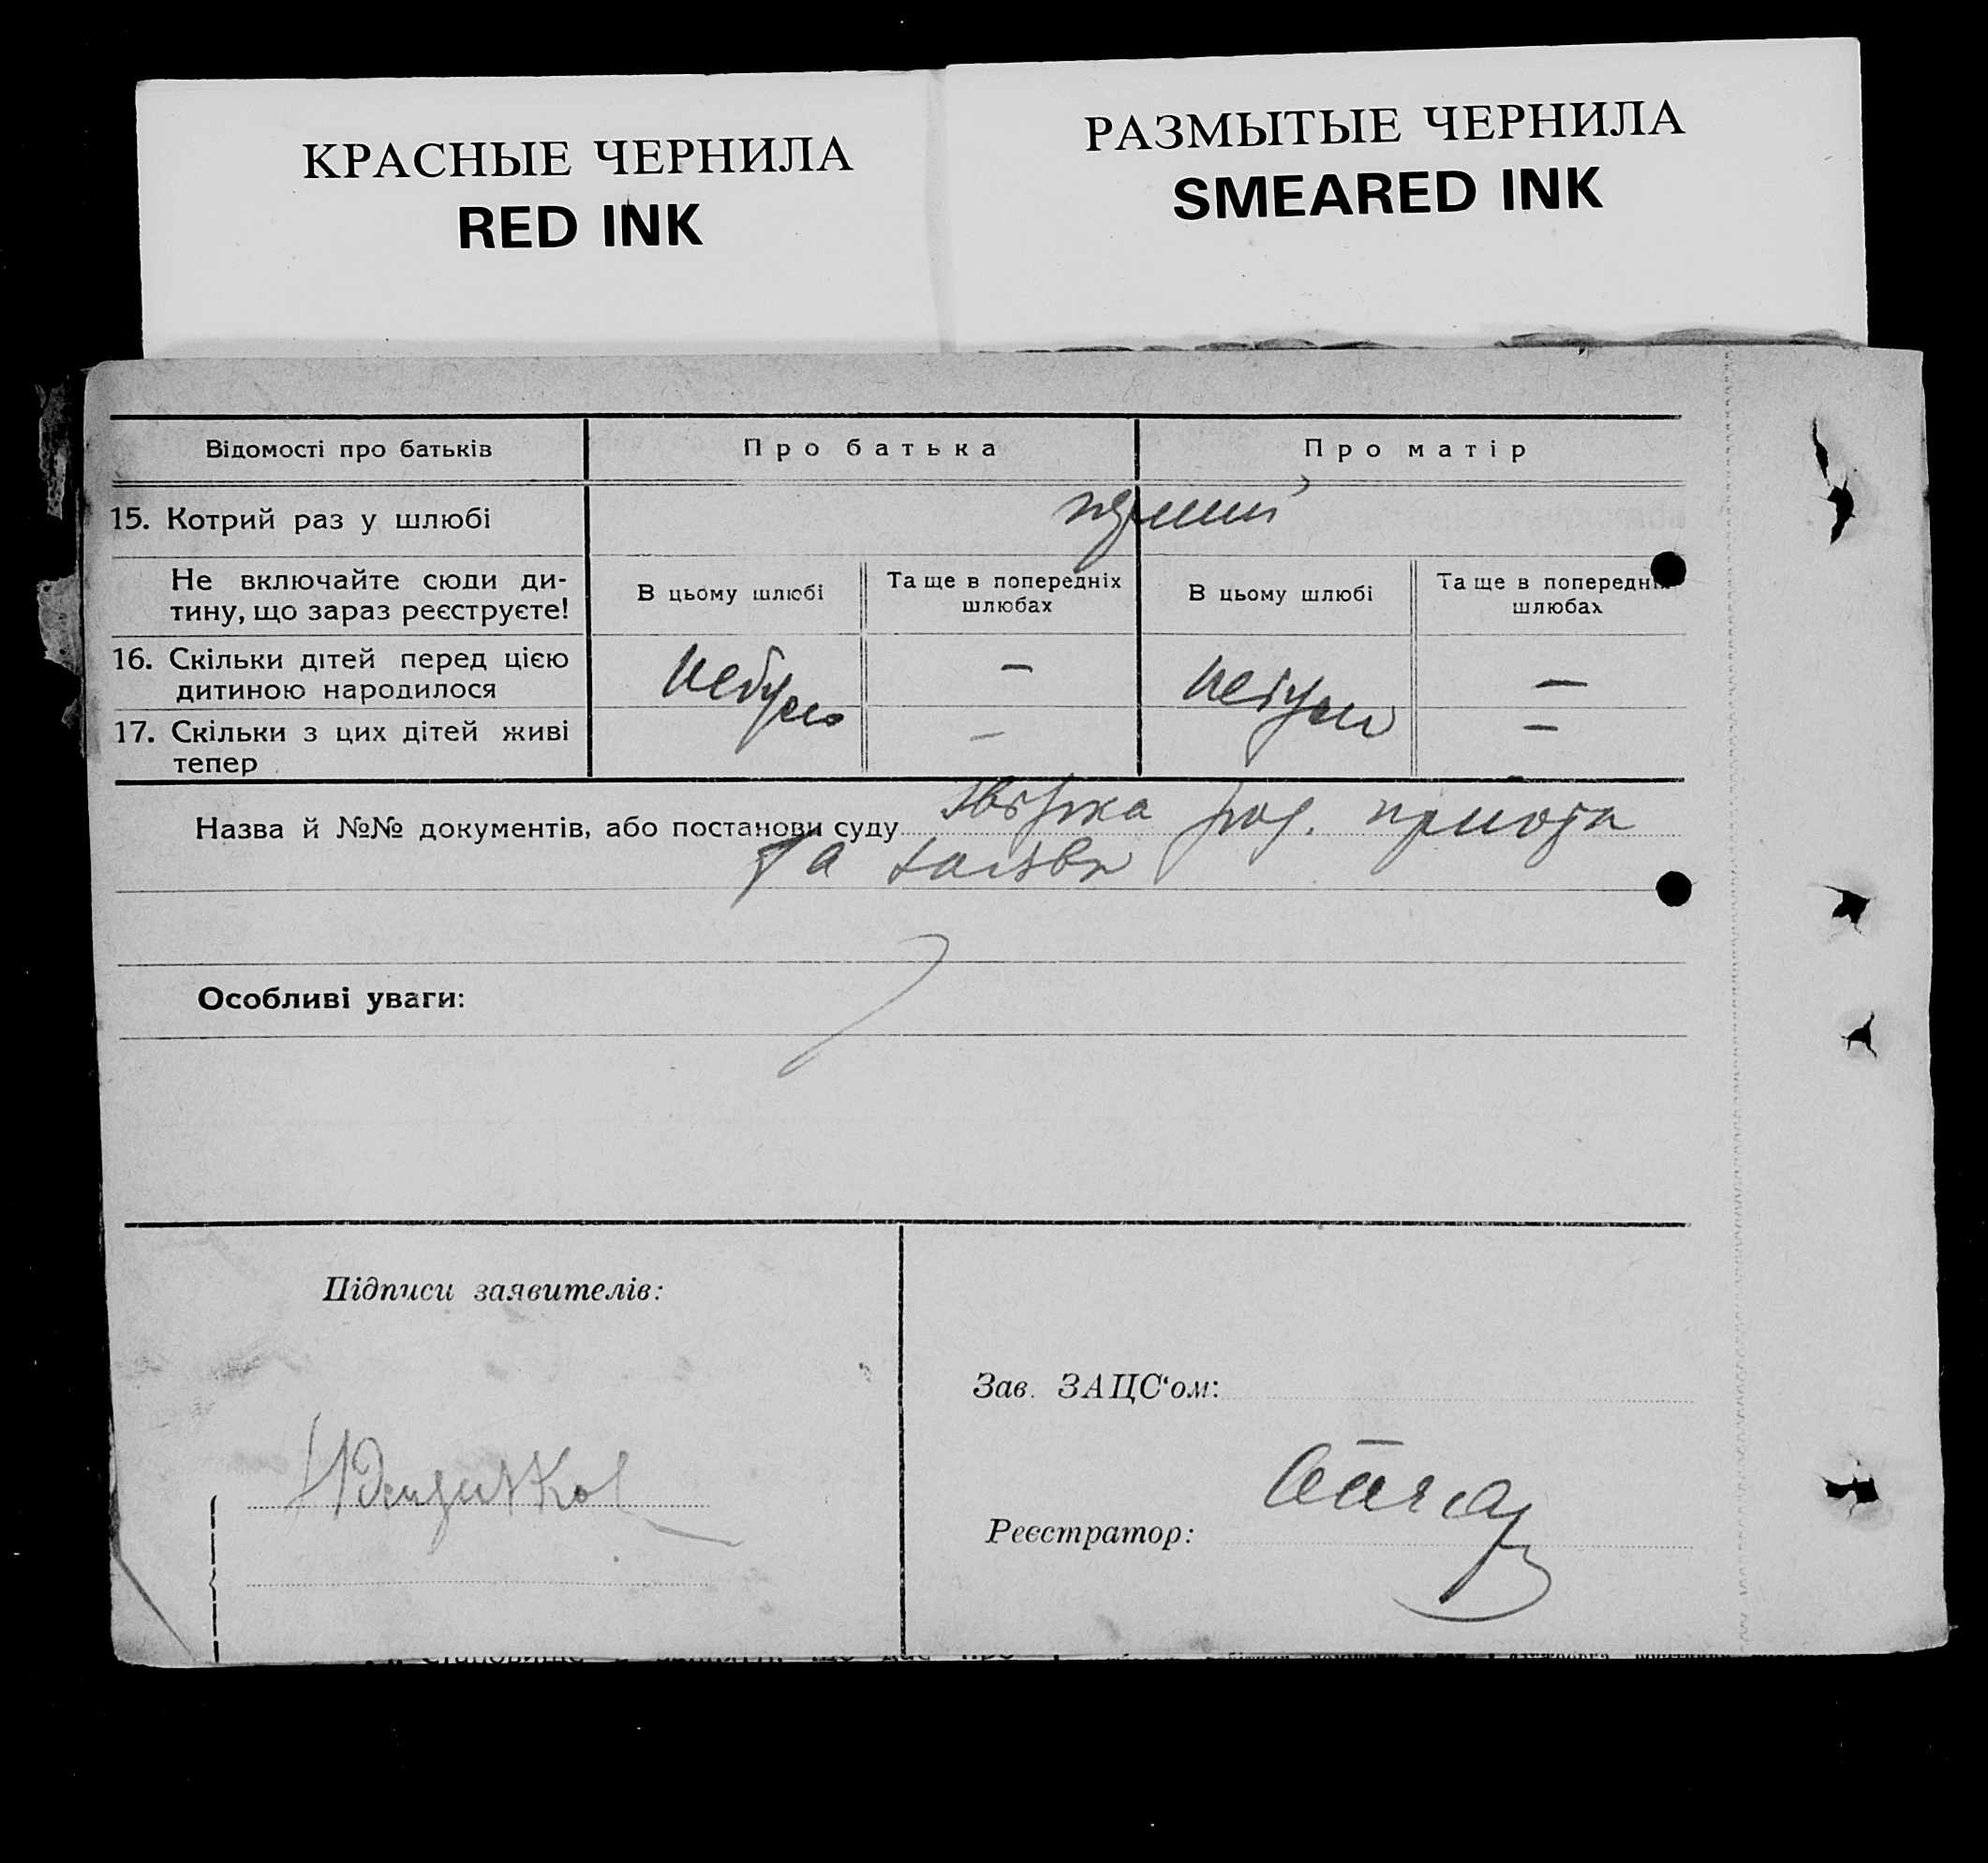 КРАСНЫЕ ЧЕРНИЛА
RED INK
РАЗМЫТЫЕ ЧЕРНИЛА
SMEARED INK
Відомості про батьків
Про батька
Про матір
15. Котрий раз у шлюбі
перший
Не включайте сюди ди-
тину, що зараз реєструєте!
В цьому шлюбі
Та ще в попередніх
шлюбах
В цьому шлюбі
Та ще в попередніх
шлюбах
16. Скільки дітей перед цією
дитиною народилося
небуло
—
небуло
—
17. Скільки з цих дітей живі
тепер
—
—
Назва й №№ документів, або постанови суду
та заява
Особливі уваги:
Підписи заявителів:
Зав. ЗАЦС‘ом:
Реєстратор: